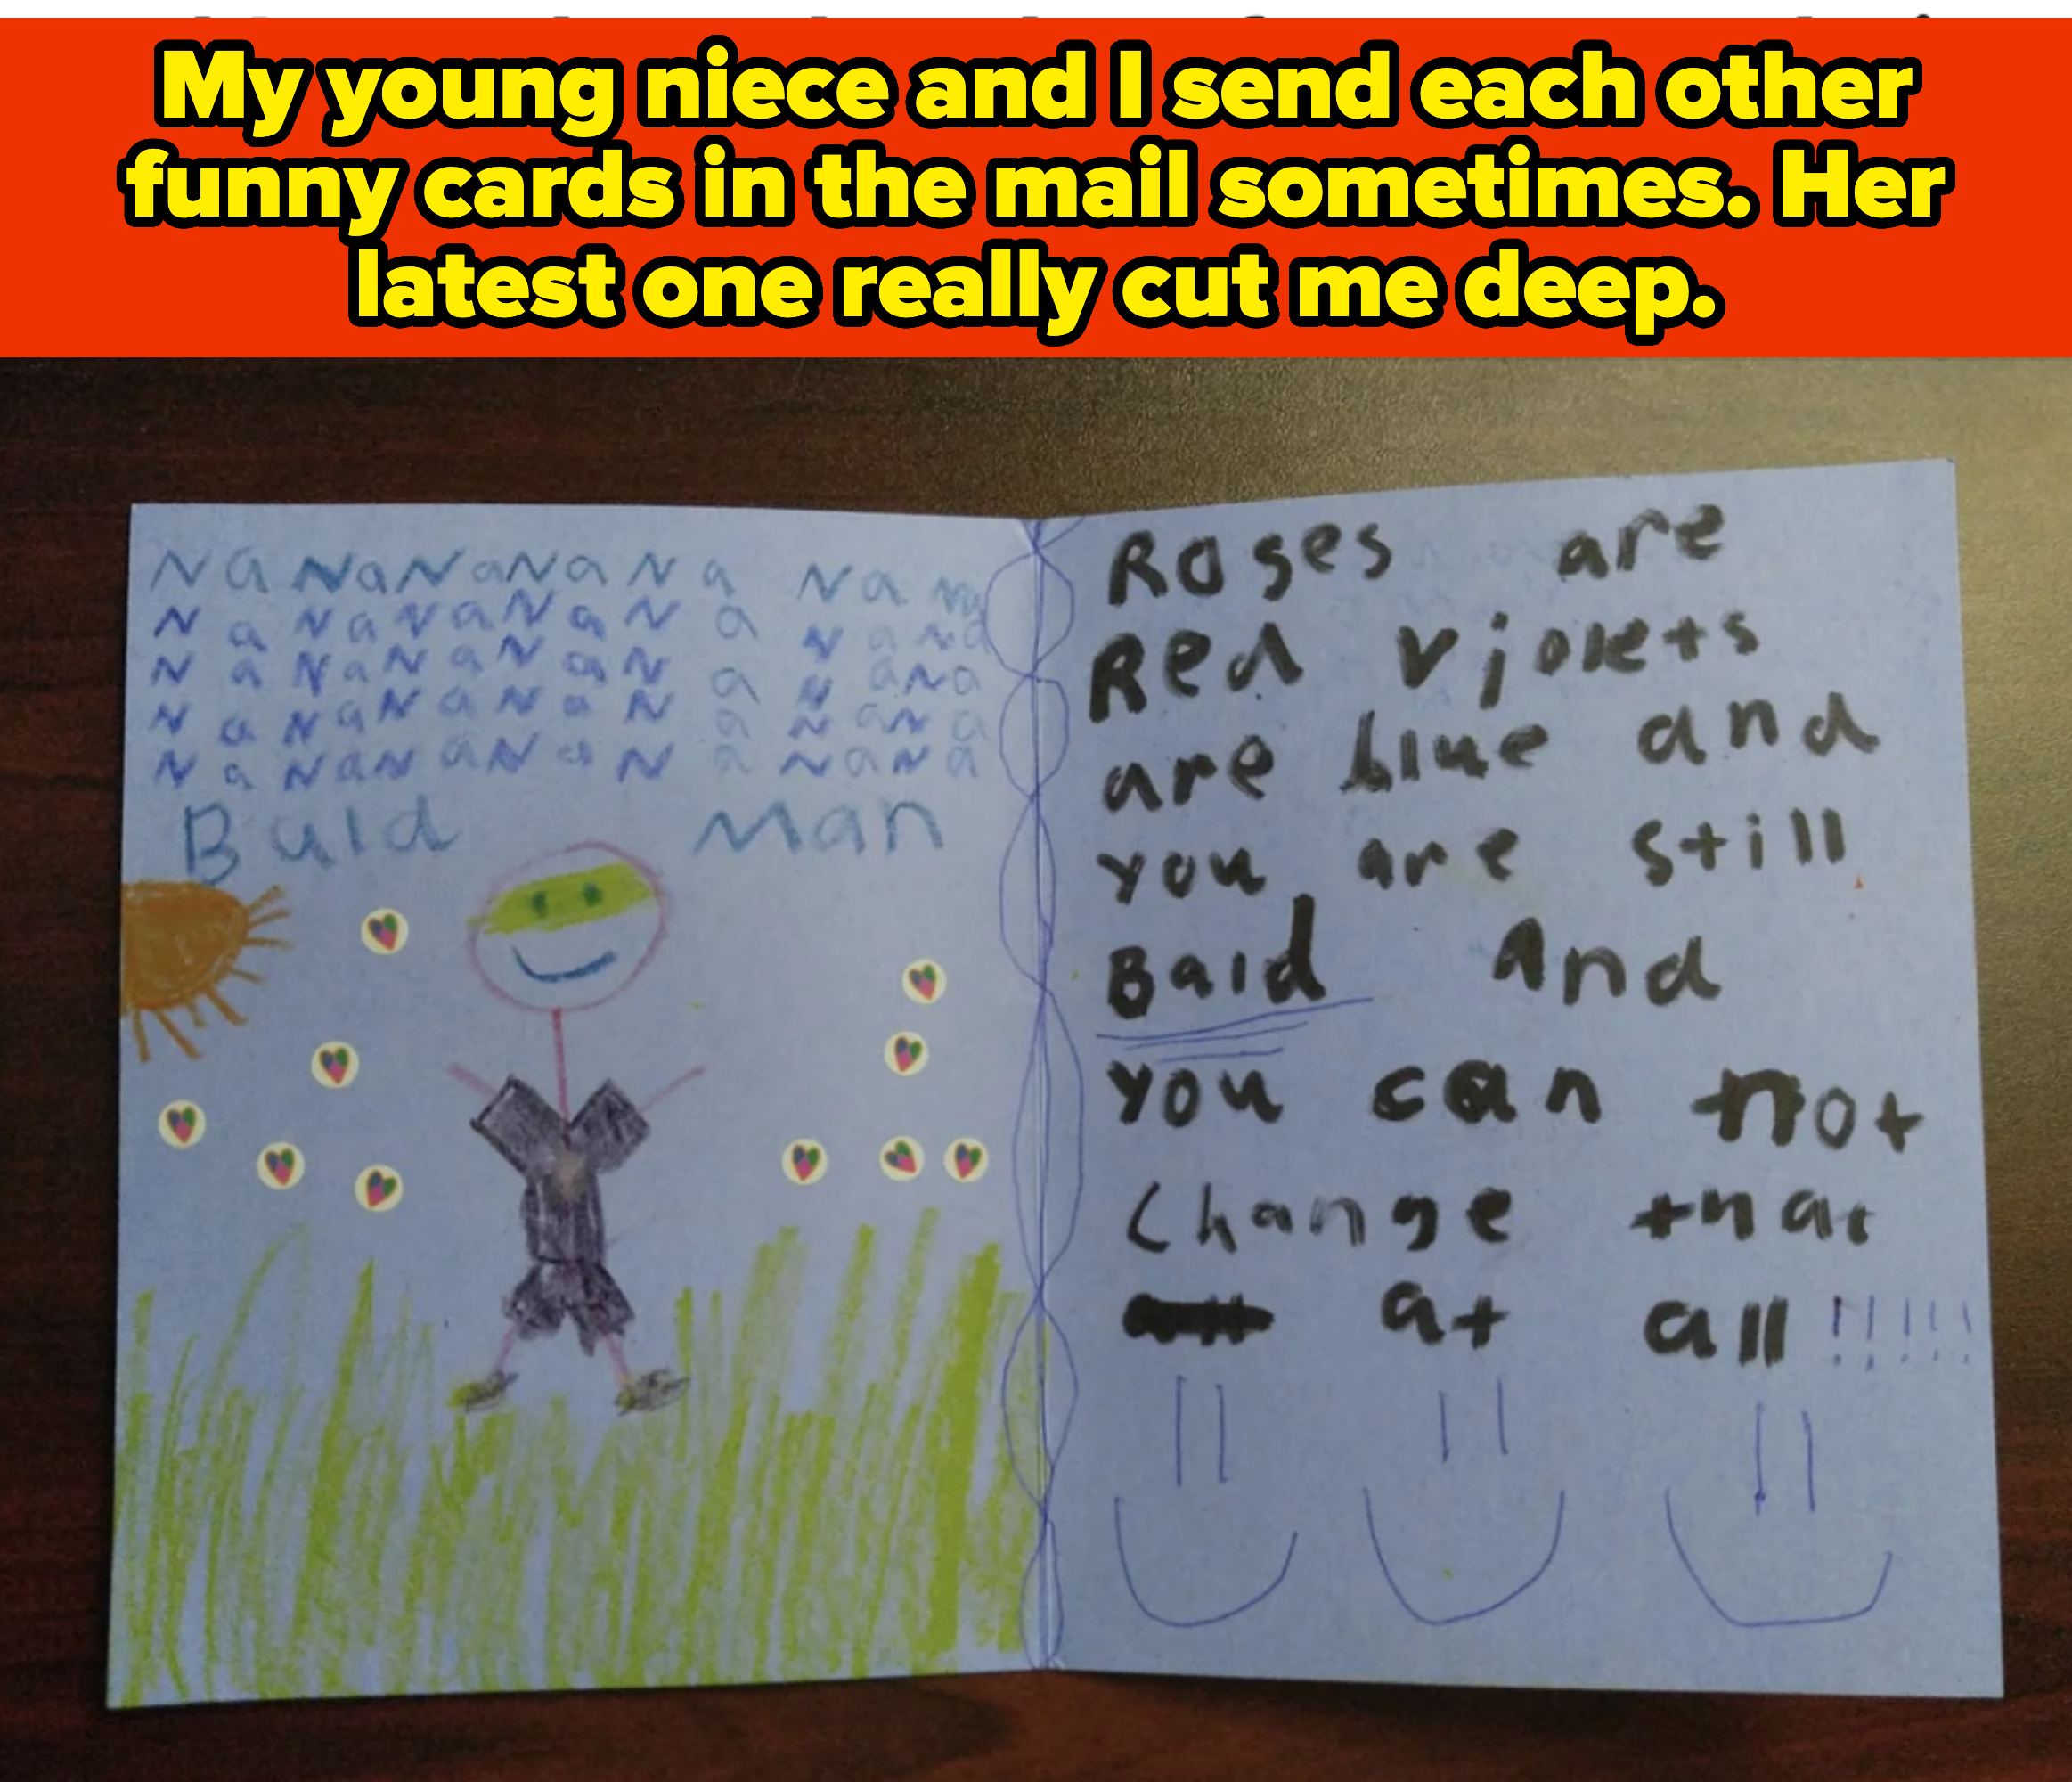 My young niece and I send each other
funny cards in the mail sometimes. Her
latest one really cut me deep.
Na Na Na Na Na Na Na
Na Na Na Na Na Na Na
Na Na Na Na Na Na Na
Na Na Na Na Na Na Na
Na Na Na Na Na Na Na
Bald Man
Roses are
Red violets
are blue and
you are still
Bald And
you can not
Change that
at all !!!!!